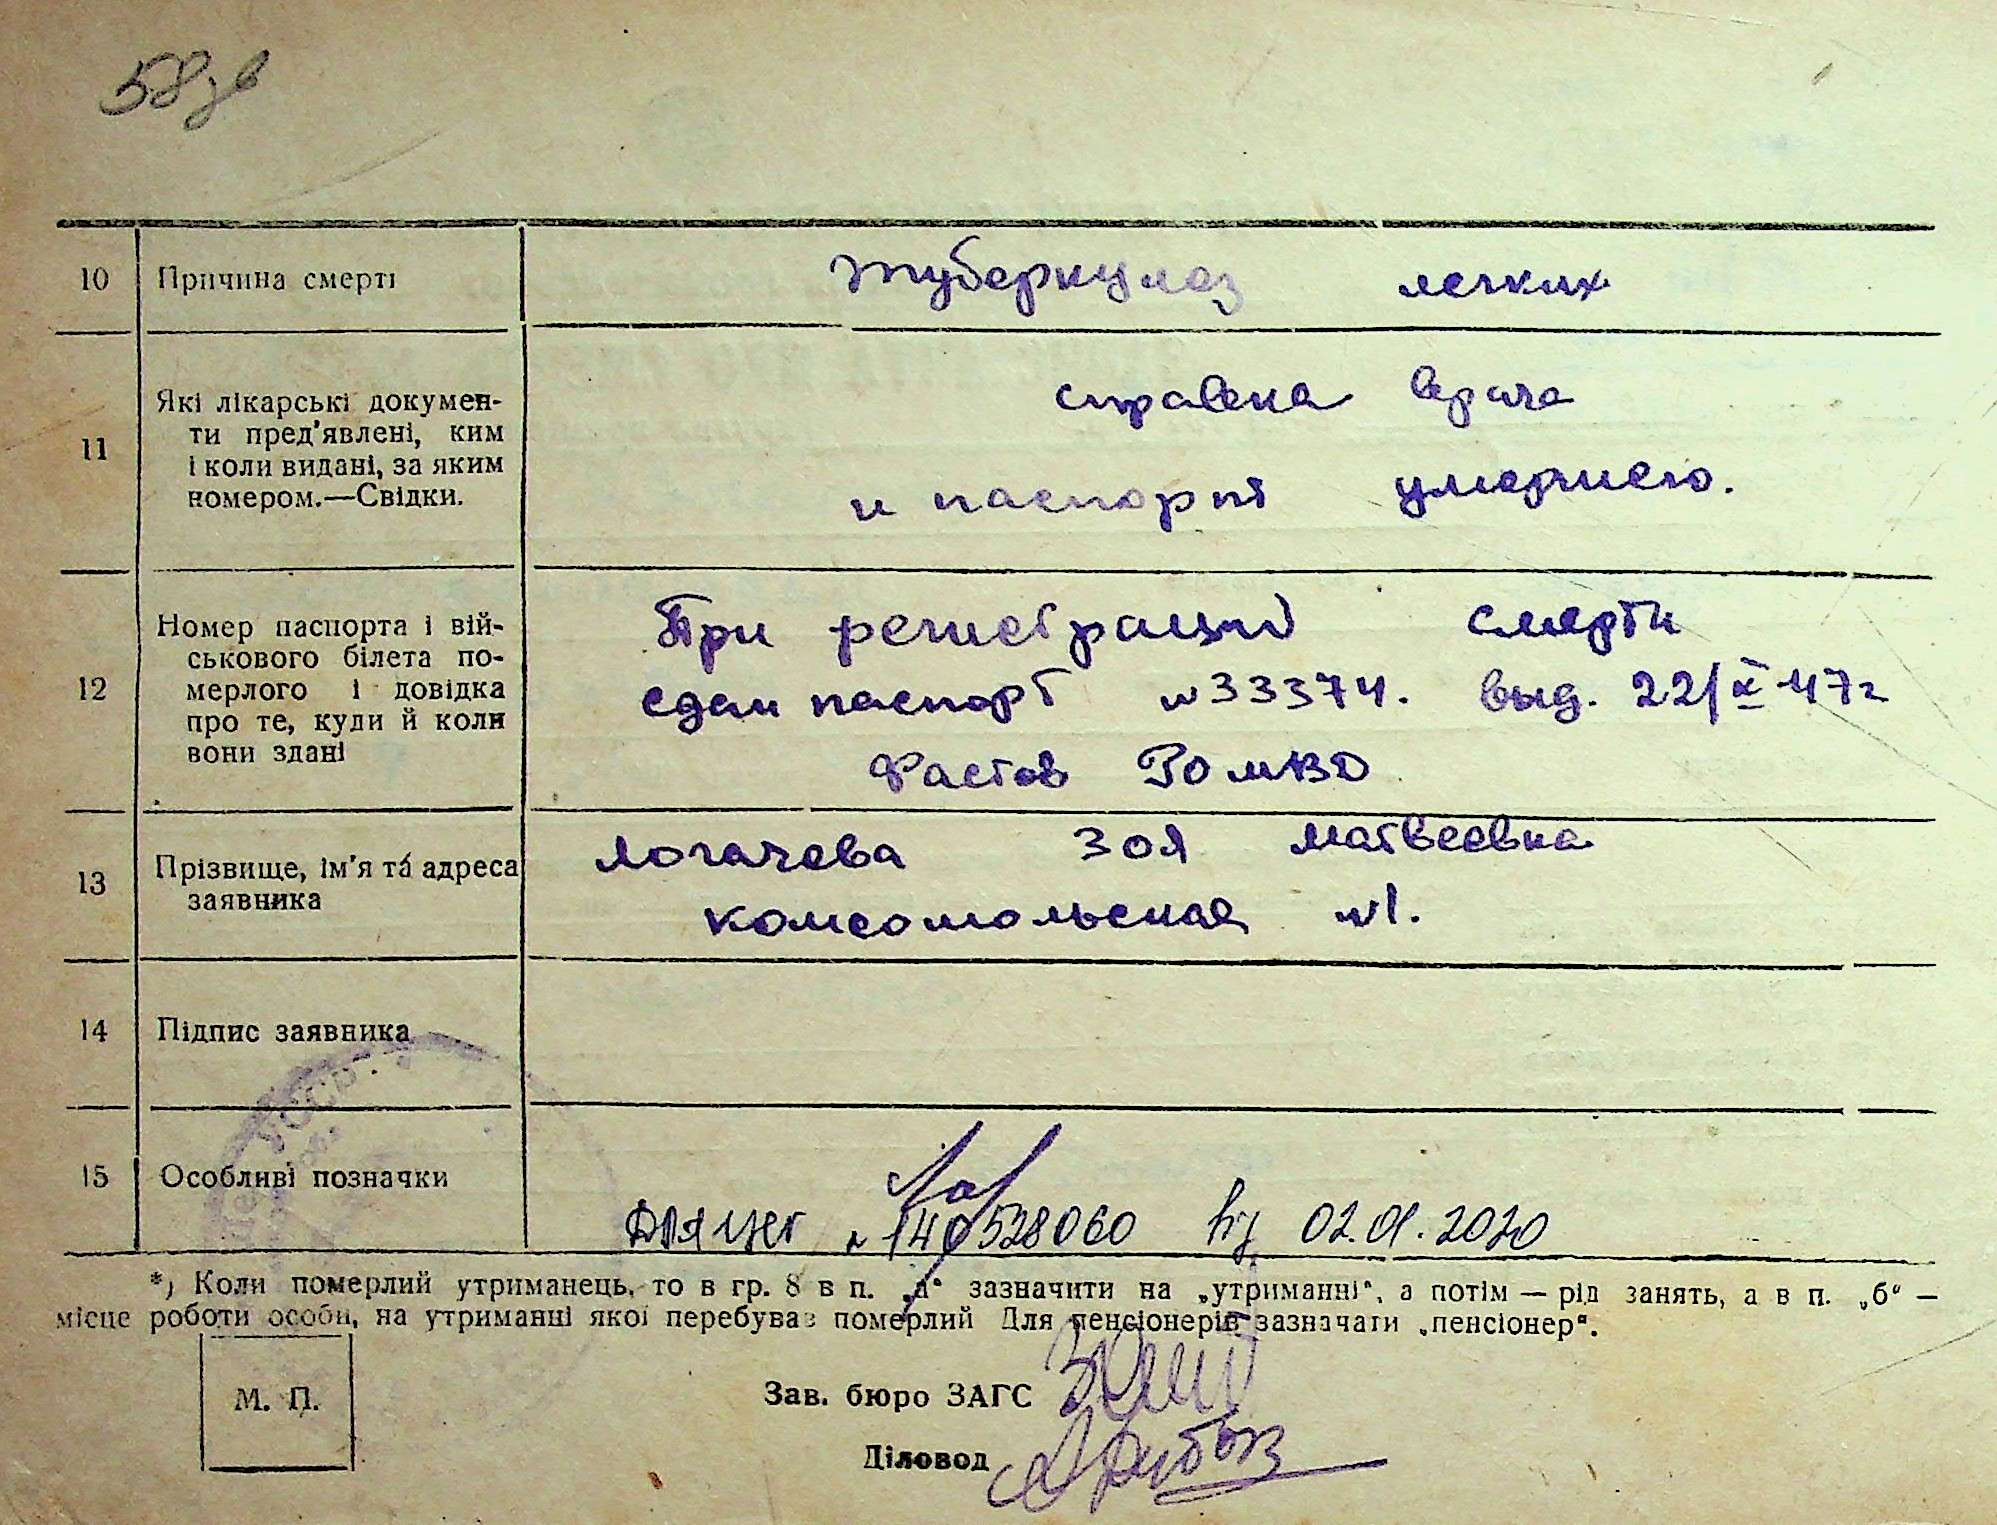 58 зв
10 Причина смерті туберкулез легких
11 Які лікарські докумен-
ти пред'явлені, ким
і коли видані, за яким
номером.—Свідки.
справка врача
и паспорт умершего.
12 Номер паспорта і вій-
ськового білета по-
мерлого і довідка
про те, куди й коли
вони здані
При регистрации смерти
сдан паспорт №33374. выд. 22/X 47г
Фастов РОМВД
13 Прізвище, ім'я та адреса
заявника
Логачева Зоя Матвеевна
Комсомольская №1.
14 Підпис заявника
УССР
15 Особливі позначки
ДРАЦСГ № 140528060 від 02.01.2020
*) Коли померлий утриманець, то в гр. 8 в п. „а“ зазначити на „утриманні“, а потім — рід занять, а в п. „б“ —
місце роботи особи, на утриманні якої перебував померлий Для пенсіонерів зазначати „пенсіонер“.
М. П.
Зав. бюро ЗАГС
Діловод